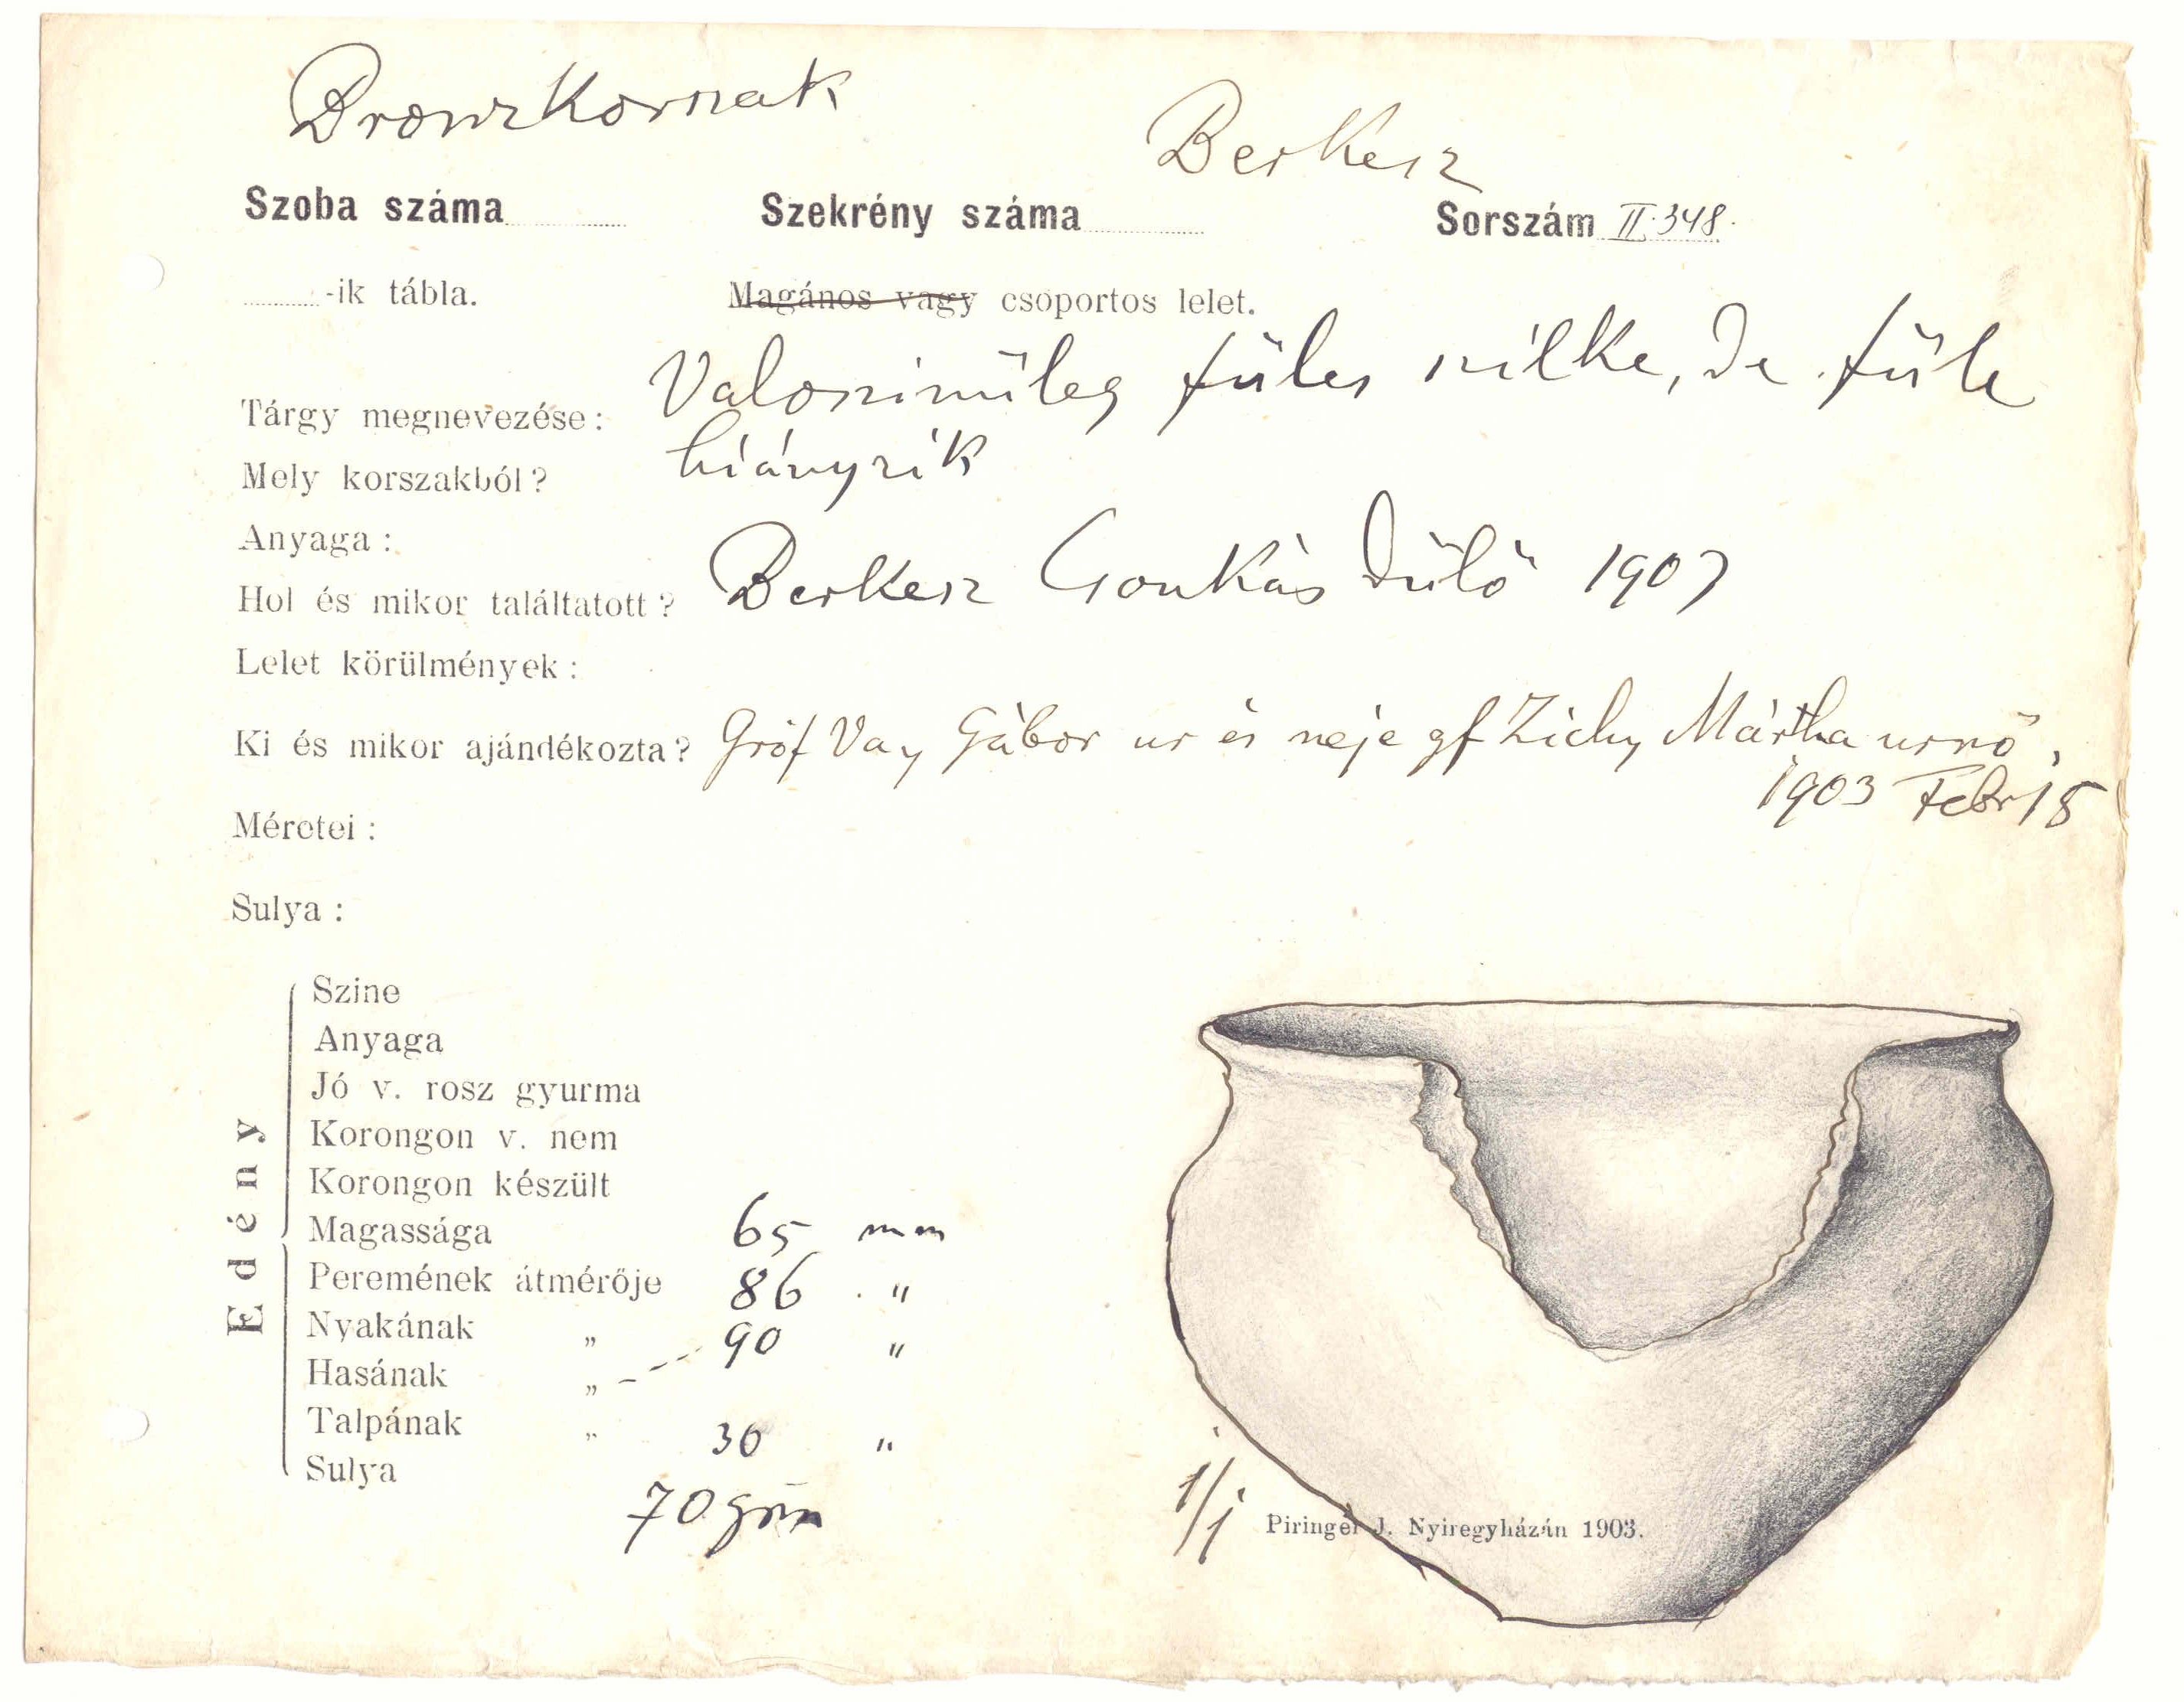 Bronzkornak
Berkesz
Szoba száma
Szekrény száma
Sorszám II.348.
-ik tábla.
Magános vagy csoportos lelet.
Tárgy megnevezése: Valoszinűleg füles szilke, de füle
hiányzik
Mely korszakból?
Anyaga:
Hol és mikor találtatott? Berkesz Csonkás dülő 1907
Lelet körülmények:
Ki és mikor ajándékozta? Gróf Vay Gábor ur és neje gf Zichy Mártha urnő,
1903 Febr 18
Méretei:
Sulya:
Edény
Szine
Anyaga
Jó v. rosz gyurma
Korongon v. nem
Korongon készült
Magassága 65 mm
Peremének átmérője 86 "
Nyakának „ 90 "
Hasának „
Talpának „ 30 "
Sulya
70 grm
1/1
Piringer J. Nyiregyházán 1903.